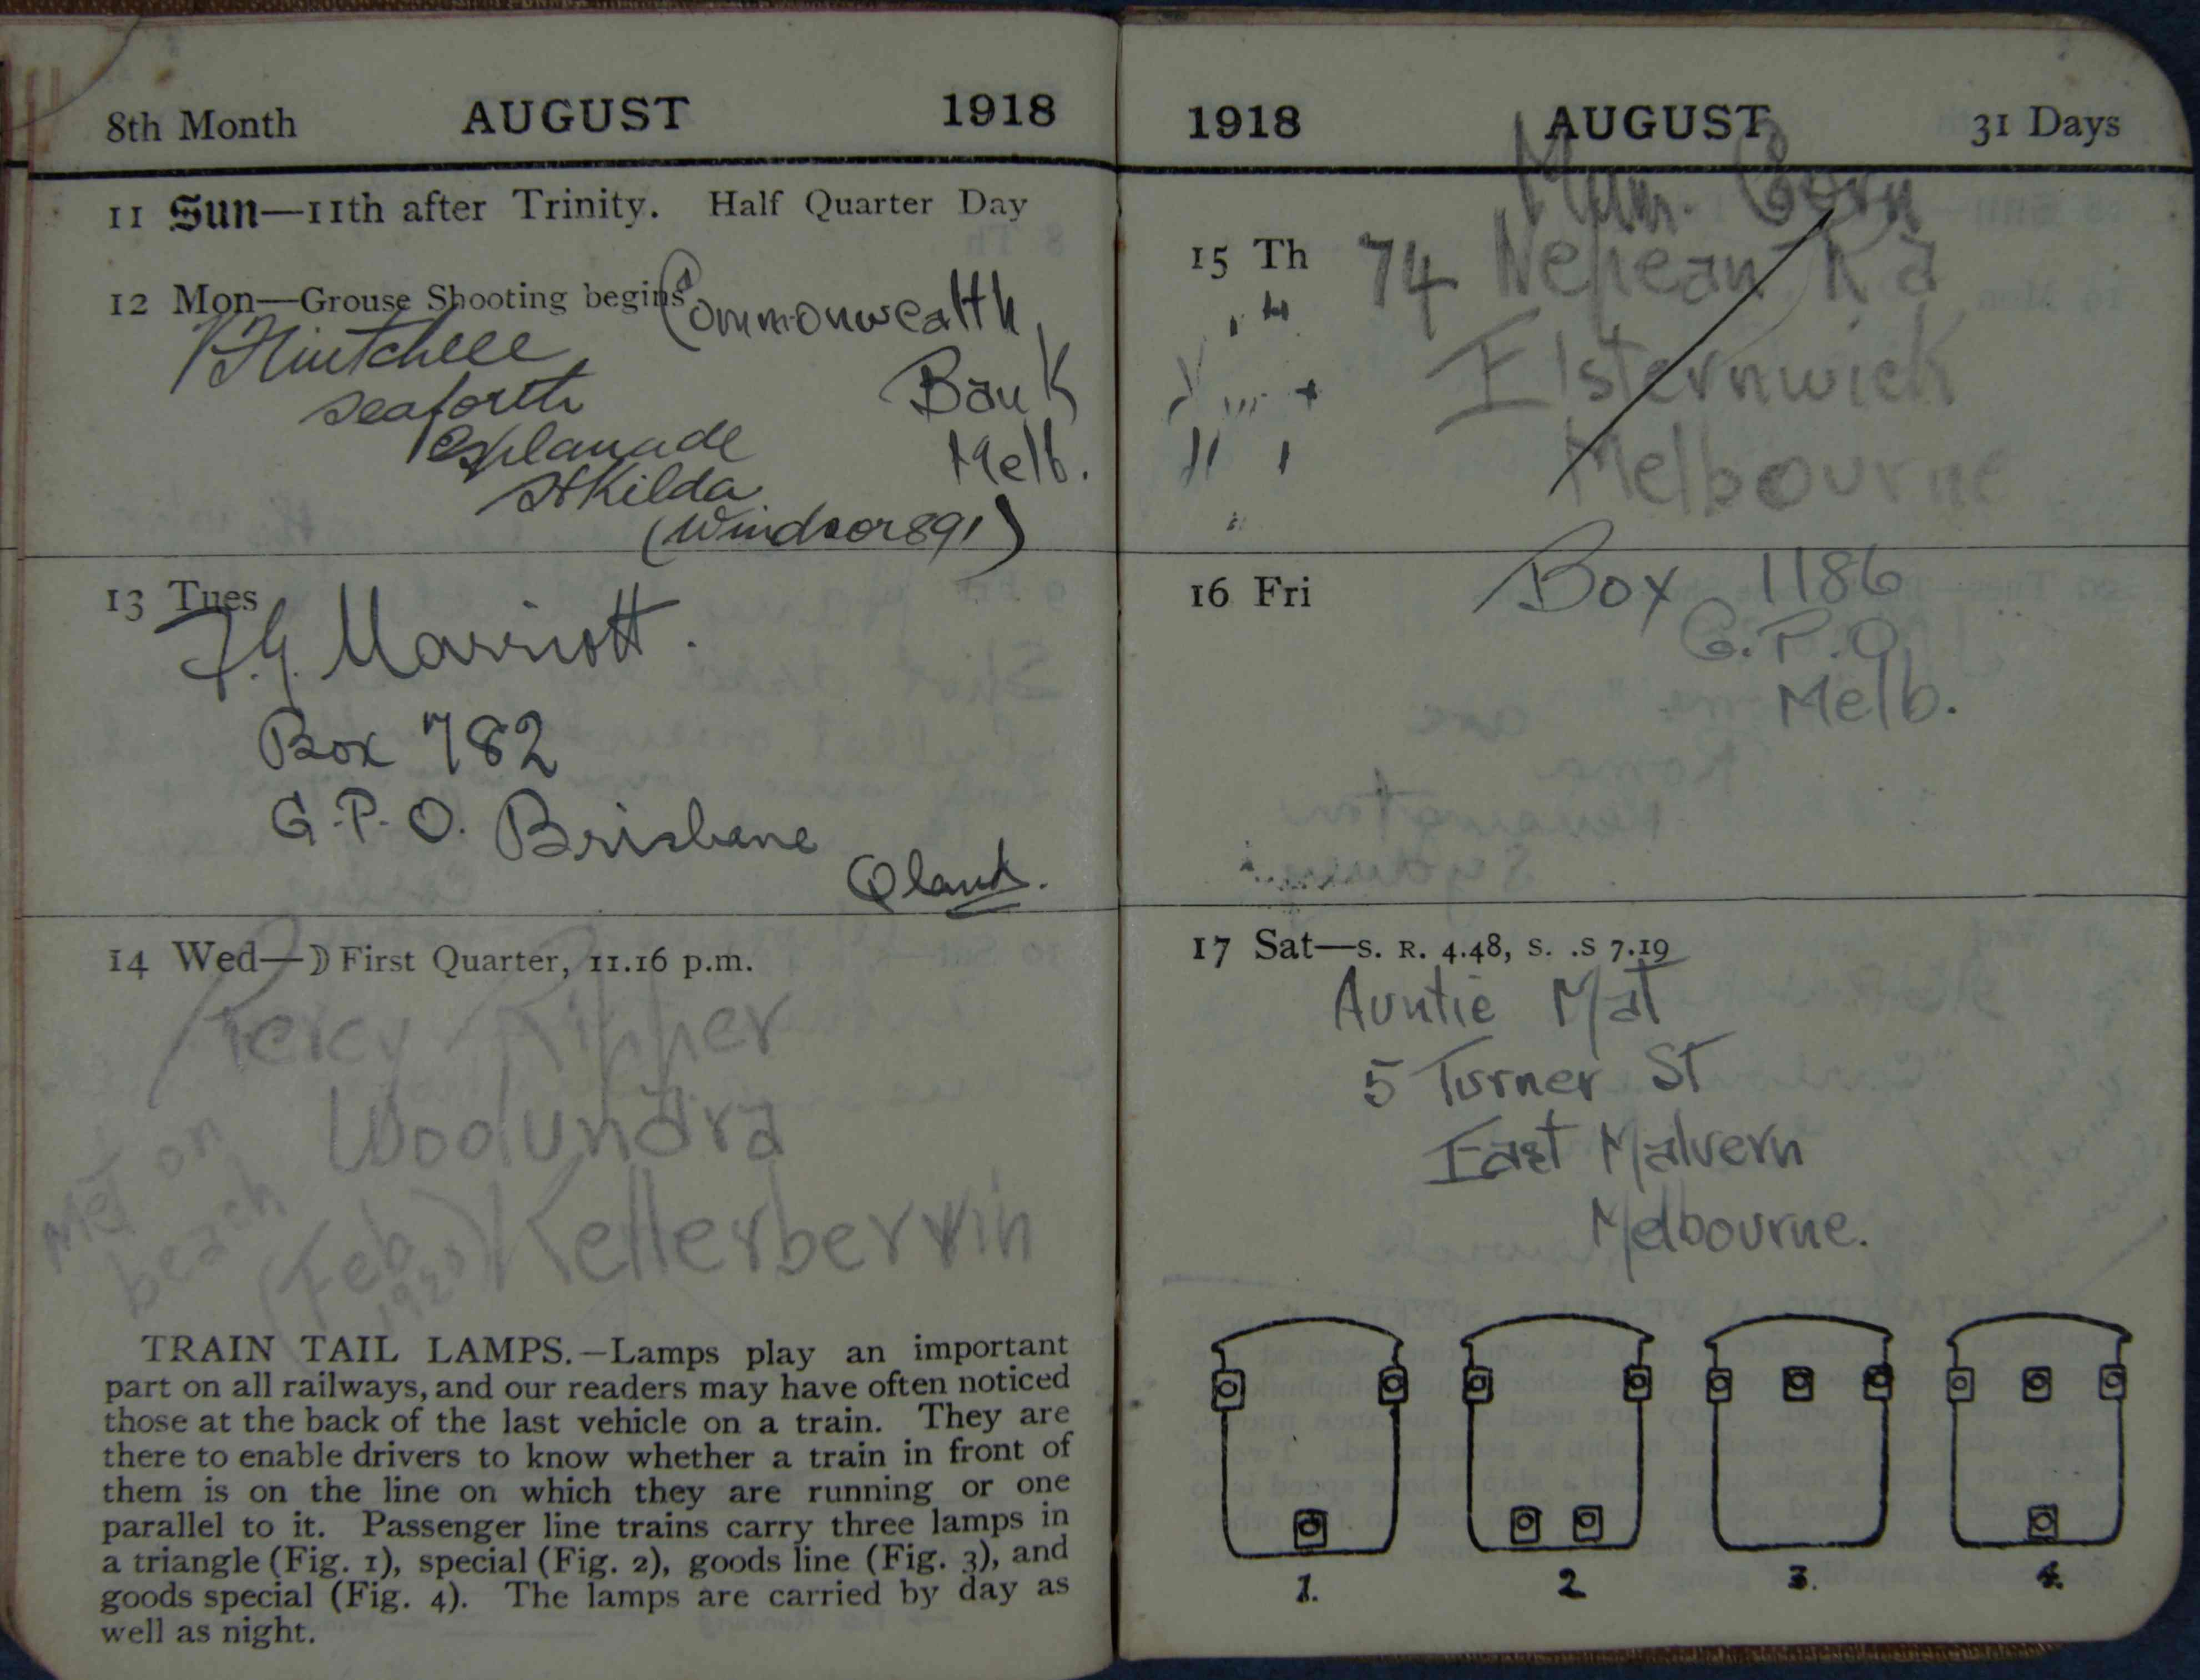 8th Month AUGUST 1918
11 Sun—11th after Trinity. Half Quarter Day
12 Mon—Grouse Shooting begins
Commonwealth
Bank
Melb.
Seaforth
Esplanade
St Kilda
(Windsor 891)
13 Tues
F.G. Marriott.
Box 782
G.P.O. Brisbane
Qland.
14 Wed—☽ First Quarter, 11.16 p.m.
Percy Kipper
Woolundra
Kellerberrin
Met on
beach
(Feb
1920)
TRAIN TAIL LAMPS.—Lamps play an important
part on all railways, and our readers may have often noticed
those at the back of the last vehicle on a train. They are
there to enable drivers to know whether a train in front of
them is on the line on which they are running or one
parallel to it. Passenger line trains carry three lamps in
a triangle (Fig. 1), special (Fig. 2), goods line (Fig. 3), and
goods special (Fig. 4). The lamps are carried by day as
well as night.
1918 AUGUST 31 Days
Mum.
15 Th
74 Nepean Rd
Elsternwick
Melbourne
16 Fri
Box 1186
G.P.O.
Melb.
17 Sat—S. R. 4.48, S. .S 7.19
Auntie Mat
5 Turner St
East Malvern
Melbourne.
1. 2 3. 4.